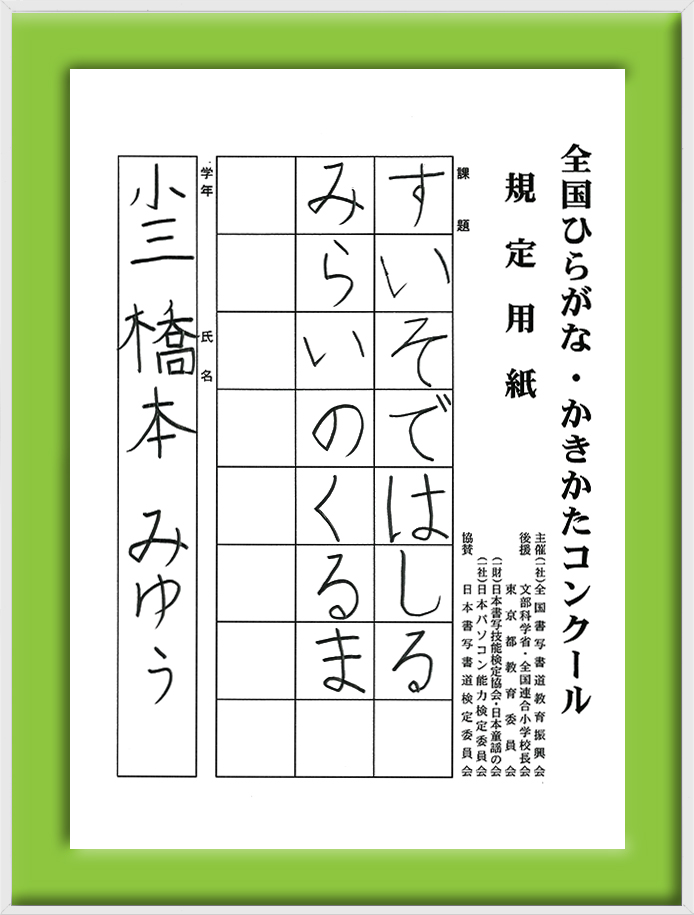 全国ひらがな・かきかたコンクール
規定用紙
主催(一社)全国書写書道教育振興会
後援 文部科学省・全国連合小学校長会
東京都教育委員会
(一財)日本書写技能検定協会・日本童謡の会
(一社)日本パソコン能力検定委員会
協賛 日本書写書道検定委員会
課題
すいそではしる
みらいのくるま
学年
氏名
小三 橋本 みゆう